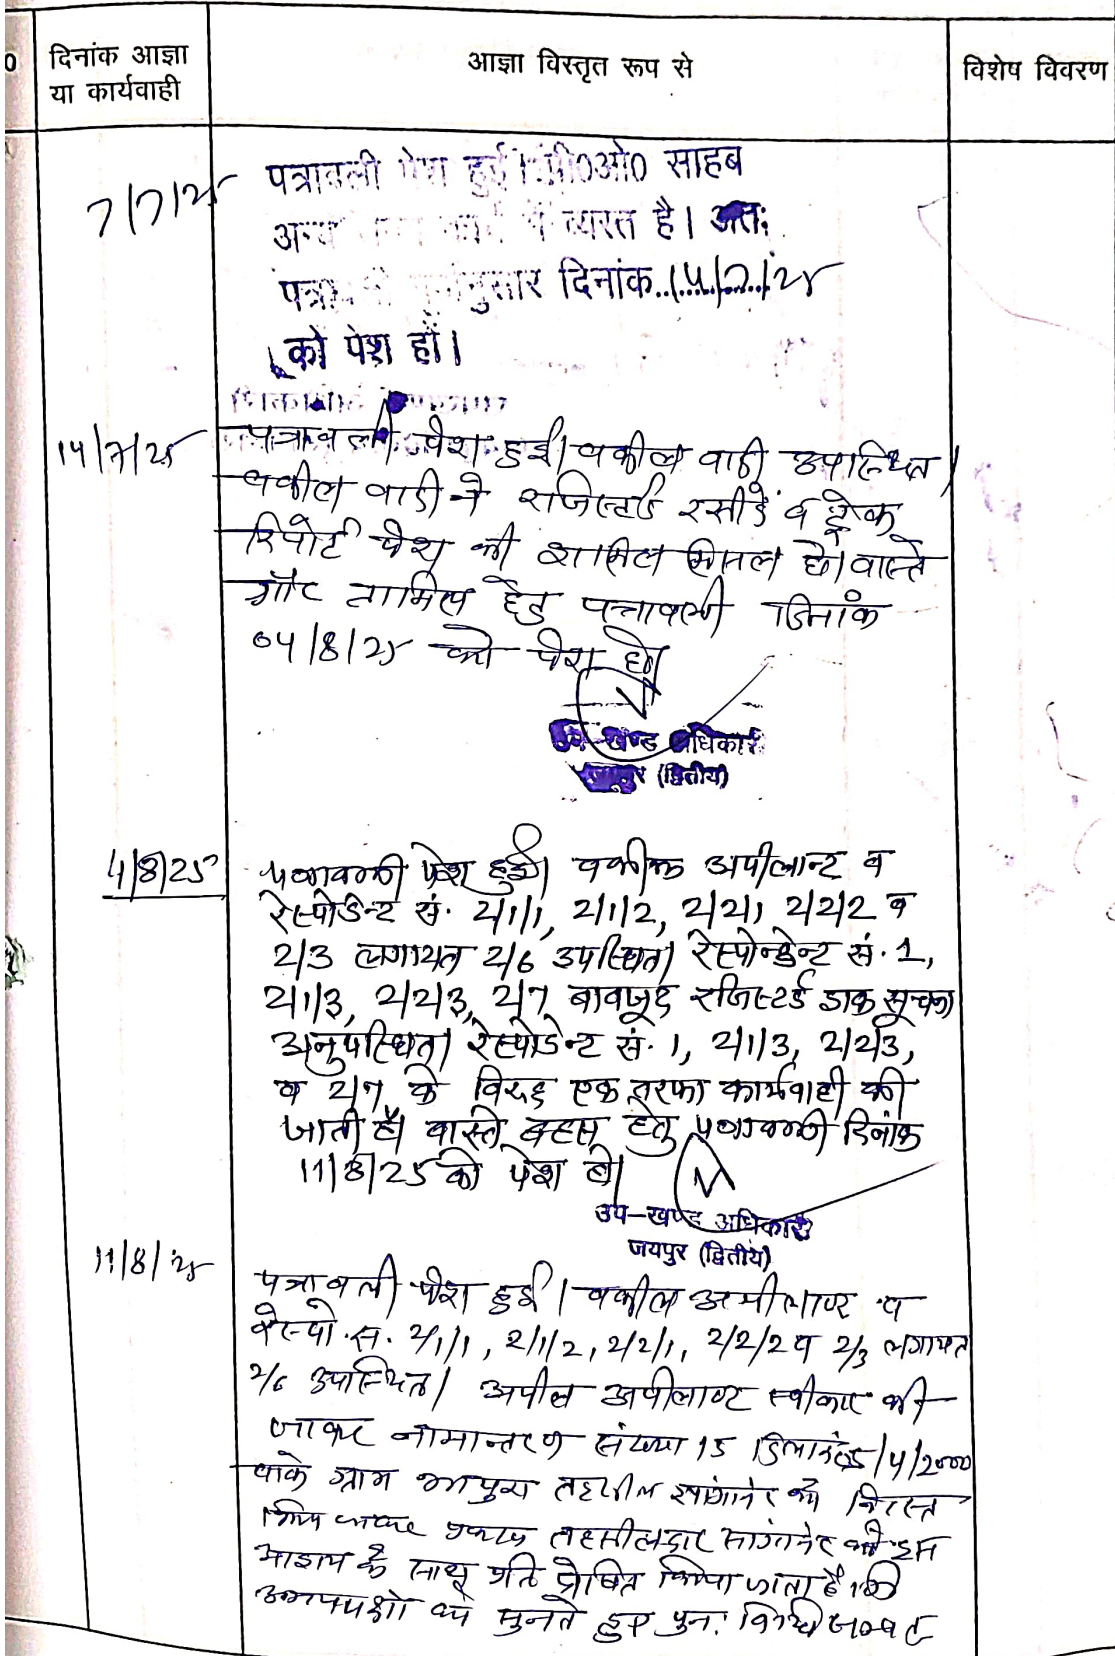 दिनांक आज्ञा
या कार्यवाही
आज्ञा विस्तृत रूप से
विशेष विवरण
7/7/25
पत्रावली पेश हुई। पी0ओ0 साहब
अन्य में व्यस्त है। अतः
दिनांक 14/7/25
को पेश हो।
14/7/25
पत्रावली पेश हुई। वकील वादी उपस्थित।
वकील वादी ने रजिस्टर्ड रसीदें व ट्रेक
रिपोर्ट पेश की शामिल मिसल हो। वास्ते
गौर तामिल हेतु पत्रावली दिनांक
04/8/25 को पेश हो।
उप-खण्ड अधिकारी
जयपुर (द्वितीय)
4/8/25
पत्रावली पेश हुई। वकील अपीलान्ट व
रेस्पोडेन्ट सं. 2/1/1, 2/1/2, 2/2/1 2/2/2 व
2/3 लगायत 2/6 उपस्थित। रेस्पोन्डेन्ट सं. 1,
2/1/3, 2/2/3, 2/7 बावजूद रजिस्टर्ड डाक सूचना
अनुपस्थित। रेस्पोडेन्ट सं. 1, 2/1/3, 2/2/3,
व 2/7 के विरुद्ध एक तरफा कार्यवाही की
जाती है। वास्ते बहस हेतु पत्रावली दिनांक
11/8/25 को पेश हो।
उप-खण्ड अधिकारी
जयपुर (द्वितीय)
11/8/25
पत्रावली पेश हुई। वकील अपीलाण्ट व
रेस्पो. सं. 2/1/1, 2/1/2, 2/2/1, 2/2/2 व 2/3 लगायत
2/6 उपस्थित। अपील अपीलाण्ट स्वीकार की
जाकर नामान्तरण संख्या 15 दिनांक /4/2000
वाके ग्राम तहसील सांगानेर को निरस्त
किया जाकर प्रकरण तहसीलदार सांगानेर को इस
आशय के साथ प्रति प्रेषित किया जाता है कि
उभयपक्षो को सुनते हुए पुनः विधि सम्मत